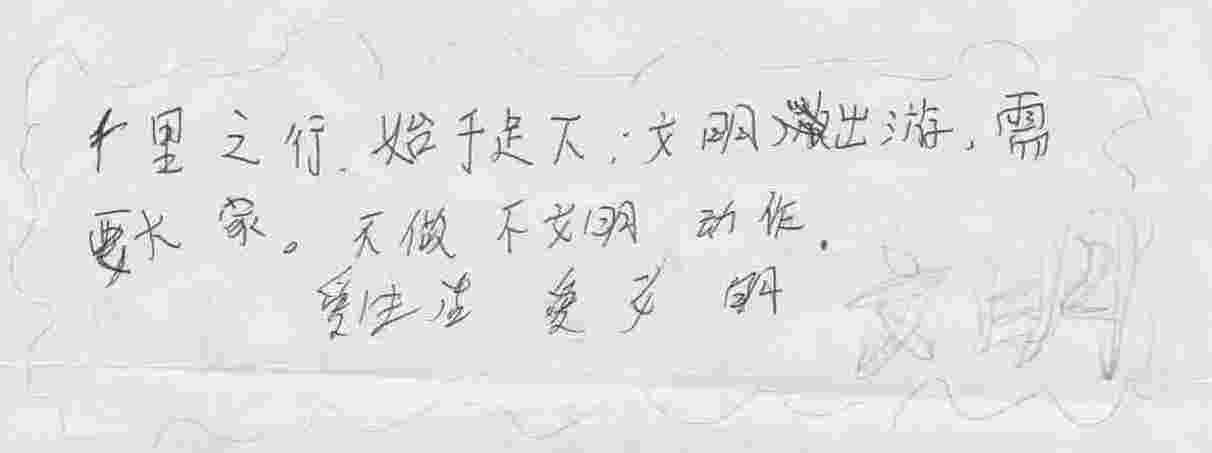 千里之行.始于足下;文明出游,需
要大家。不做不文明动作.
爱生活 爱文明
文明